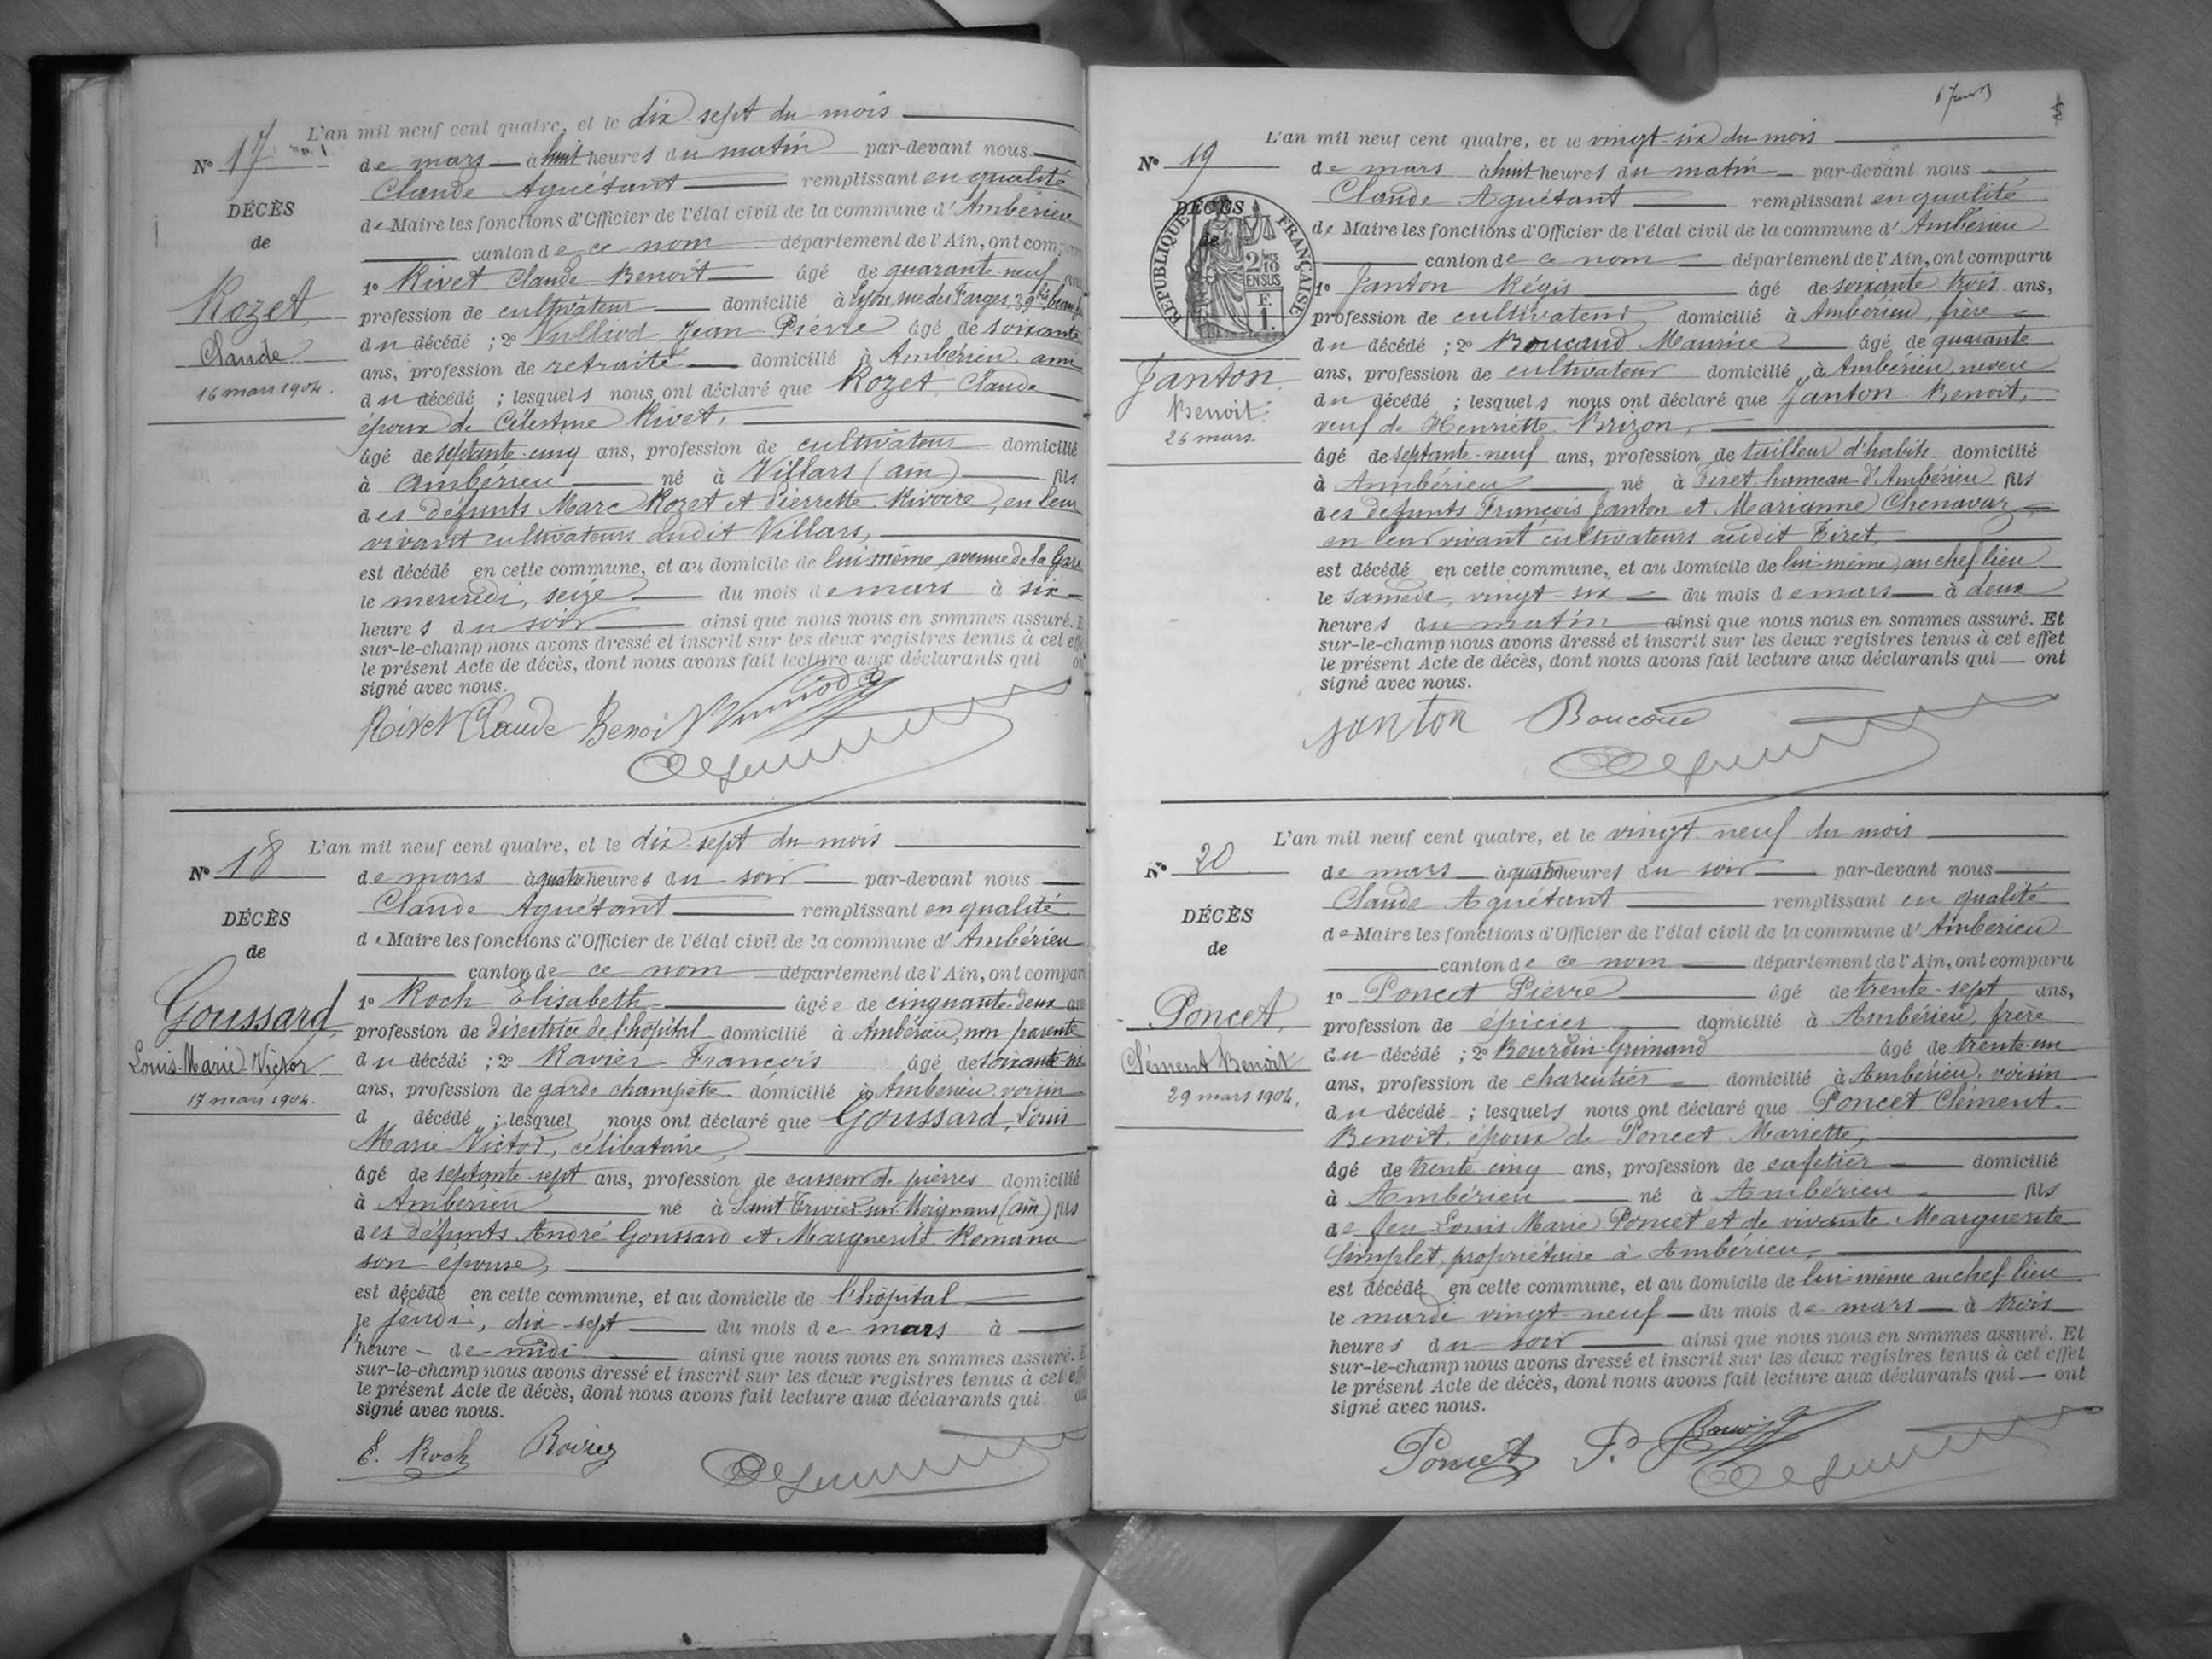 L'an mil neuf cent quatre, et le dix-sept du mois
N° 17
de mars à huit heures du matin par-devant nous
Claude Aguétant remplissant en qualité
DÉCÈS
de Maire les fonctions d'Officier de l'état civil de la commune d'Ambérieu
de
canton de ce nom département de l'Ain, ont comparu
1° Rivet Claude Benoit âgé de quarante neuf ans
Rozet
profession de cultivateur domicilié à Lyon, rue des Farges, 39
du décédé ; 2° Vulliod Jean Pierre âgé de soixante
Claude
ans, profession de retraité domicilié à Ambérieu, ami
16 mars 1904.
du décédé ; lesquels nous ont déclaré que Rozet Claude
époux de Célestine Rivet,
âgé de septante-cinq ans, profession de cultivateur domicilié
à Ambérieu né à Villars (ain) fils
des défunts Marc Rozet et Pierrette Rivoire, en leur
vivant cultivateurs audit Villars,
est décédé en cette commune, et au domicile de lui même, avenue de la Gare
le mercredi, seize du mois de mars à six
heures du soir ainsi que nous nous en sommes assuré. E
sur-le-champ nous avons dressé et inscrit sur les deux registres tenus à cet eff
le présent Acte de décès, dont nous avons fait lecture aux déclarants qui on
signé avec nous.
Rivet Claude Benoit
L'an mil neuf cent quatre, et le dix-sept du mois
N° 18
de mars à quatre heures du soir par-devant nous
Claude Aguétant remplissant en qualité
DÉCÈS
de Maire les fonctions d'Officier de l'état civil de la commune d'Ambérieu
de
canton de ce nom département de l'Ain, ont compar
1° Roch Elisabeth âgée de cinquante-deux ans
Goussard
profession de directrice de l'hôpital domicilié à Ambérieu, non parente
Louis-Marie-Victor
du décédé ; 2° Ravier François âgé de soixante-six
ans, profession de garde champête domicilié à Ambérieu voisin
17 mars 1904.
d décédé ; lesquel nous ont déclaré que Goussard, Louis
Marie Victor, célibataire,
âgé de septante-sept ans, profession de casseur de pierres domicilié
à Ambérieu né à Saint Trivier sur Moignans (ain) fils
des défunts André Goussard et Marguerite Romana
son épouse,
est décédé en cette commune, et au domicile de l'hôpital
le jeudi, dix-sept du mois de mars à
heure de midi ainsi que nous nous en sommes assuré. E
sur-le-champ nous avons dressé et inscrit sur les deux registres tenus à cet eff
le présent Acte de décès, dont nous avons fait lecture aux déclarants qui on
signé avec nous.
E. Roch
L'an mil neuf cent quatre, et le vingt-six du mois
N° 19
de mars à huit heures du matin par-devant nous
Claude Aguétant remplissant en qualité
DÉCÈS
de Maire les fonctions d'Officier de l'état civil de la commune d'Ambérieu
de
RÉPUBLIQUE FRANÇAISE
2/10 EN SUS
F. 1.
canton de ce nom département de l'Ain, ont comparu
1° Janton Régis âgé de soixante trois ans,
profession de cultivateur domicilié à Ambérieu, frère
du décédé ; 2° Boucaud Maurice âgé de quarante
Janton
ans, profession de cultivateur domicilié à Ambérieu, neveu
Benoit
du décédé ; lesquels nous ont déclaré que Janton Benoit,
26 mars.
veuf de Henriette Brizon,
âgé de septante-neuf ans, profession de tailleur d'habits domicilié
à Ambérieu né à Tiret, hameau d'Ambérieu fils
des défunts François Janton et Marianne Chenavaz
en leur vivant cultivateurs audit Tiret,
est décédé en cette commune, et au domicile de lui-même, au chef-lieu
le samedi, vingt-six du mois de mars à deux
heures du matin ainsi que nous nous en sommes assuré. Et
sur-le-champ nous avons dressé et inscrit sur les deux registres tenus à cet effet
le présent Acte de décès, dont nous avons fait lecture aux déclarants qui ont
signé avec nous.
Janton
L'an mil neuf cent quatre, et le vingt neuf du mois
N° 20
de mars à quatre heures du soir par-devant nous
Claude Aguétant remplissant en qualité
DÉCÈS
de Maire les fonctions d'Officier de l'état civil de la commune d'Ambérieu
de
canton de ce nom département de l'Ain, ont comparu
1° Poncet Pierre âgé de trente-sept ans,
Poncet
profession de épicier domicilié à Ambérieu, frère
du décédé ; 2° Bourdin-Grimaud âgé de trente-un
Clément Benoit
ans, profession de charcutier domicilié à Ambérieu, voisin
29 mars 1904.
du décédé ; lesquels nous ont déclaré que Poncet Clément
Benoit, époux de Poncet Mariette,
âgé de trente cinq ans, profession de cafetier domicilié
à Ambérieu né à Ambérieu fils
de feu Louis Marie Poncet et de vivante Marguerite
Simplet, propriétaire à Ambérieu,
est décédé en cette commune, et au domicile de lui-même au chef lieu
le mardi vingt-neuf du mois de mars à trois
heures du soir ainsi que nous nous en sommes assuré. Et
sur-le-champ nous avons dressé et inscrit sur les deux registres tenus à cet effet
le présent Acte de décès, dont nous avons fait lecture aux déclarants qui ont
signé avec nous.
Poncet P.